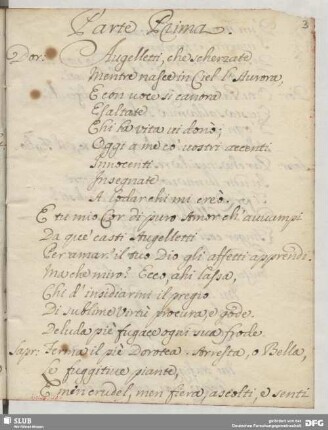 3
Parte Prima.
Dor: Augelletti, che scherzate
Mentre nasce in Ciel l'Aurora,
E con voce sì canora
Esaltate
Chi la vita vi donò;
Oggi a me co' vostri accenti
Innocenti
Insegnate
A lodar chi mi creò.
E tu mio Cor di puro Amor ch'avvampi
Da que' casti Augelletti
Per amar il tuo Dio gli affetti apprendi.
Ma che miro? Ecco, ahi lassa,
Che d'insidiarmi il pregio
Di sublime Virtù procura, e
Deluda piè fugace ogni sua frode
Sapr: Ferma il piè Dorotea. Arresta, o Bella,
Le fuggitive piante,
E men crudel, men fiera, ascolti, e senti
SLUB
Wir führen Wissen.
gefördert von der
Deutschen Forschungsgemeinschaft
DFG